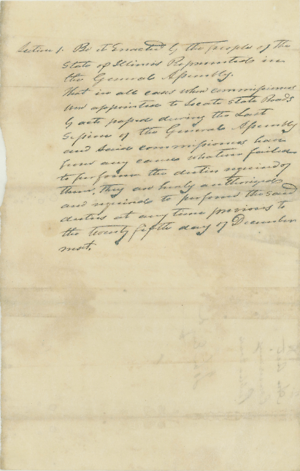 Section 1. Be it Enacted by the people of the
State of Illinois Represented in
the General Assembly.
That in all cases when commissioners
was appointed to locate State Roads
by acts passed during the last
Session of the General Assembly
and said commissioners have
from any cause whatever failed
to perform the duties required of
them, they are hereby authorized
and required to perform the said
duties at any time previous to
the twenty fifth day of December
next.